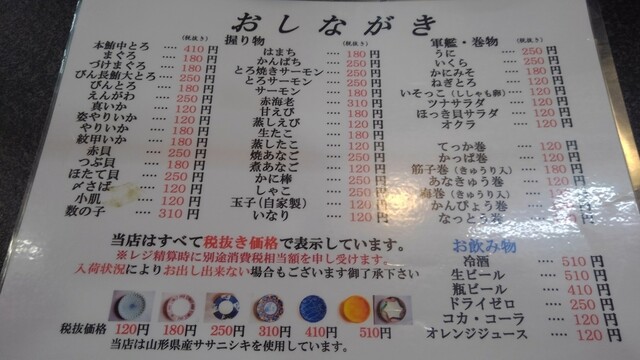 おしながき
(税抜き)
本鮪中とろ ···· 410円
まぐろ ···· 180円
づけまぐろ ···· 180円
びん長鮪大とろ ···· 250円
びんとろ ···· 180円
えんがわ ···· 250円
真いか ···· 120円
姿やりいか ···· 120円
やりいか ···· 180円
紋甲いか ···· 180円
赤貝 ···· 250円
つぶ貝 ···· 180円
ほたて貝 ···· 250円
〆さば ···· 120円
小肌 ···· 120円
数の子 ···· 310円
握り物
(税抜き)
はまち ···· 180円
かんぱち ···· 250円
とろ焼きサーモン ···· 250円
とろサーモン ···· 250円
サーモン ···· 180円
赤海老 ···· 310円
甘えび ···· 180円
蒸しえび ···· 120円
生たこ ···· 180円
蒸したこ ···· 120円
焼あなご ···· 250円
煮あなご ···· 120円
かに棒 ···· 120円
しゃこ ···· 250円
玉子(自家製) ···· 120円
いなり ···· 120円
軍艦・巻物
(税抜き)
うに ···· 250円
いくら ···· 250円
かにみそ ···· 180円
ねぎとろ ···· 120円
いそっこ(ししゃも卵) ···· 120円
ツナサラダ ···· 120円
ほっき貝サラダ ···· 120円
オクラ ···· 120円
てっか巻 ···· 120円
かっぱ巻 ···· 120円
筋子巻(きゅうり入) ···· 180円
あなきゅう巻 ···· 120円
梅巻(きゅうり入) ···· 120円
かんぴょう巻 ···· 120円
なっとう巻 ···· 120円
お飲み物
冷酒 ···· 510円
生ビール ···· 510円
瓶ビール ···· 410円
ドライゼロ ···· 250円
コカ・コーラ ···· 120円
オレンジジュース ···· 120円
当店はすべて税抜き価格で表示しています。
※レジ精算時に別途消費税相当額を申し受けます。
入荷状況によりお出し出来ない場合もございます御了承下さい
税抜価格 120円 180円 250円 310円 410円 510円
当店は山形県産ササニシキを使用しています。